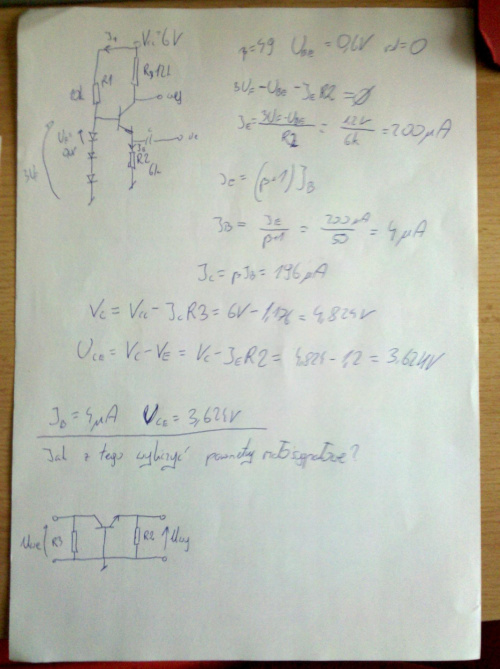 Vcc=6V
R1
R3 12k
wej
R2
6k
3UF
β=49 UBE=0,6V
3UF-UBE-IE R2=0
IE=3UF-UBE/R2=1,2V/6k=200μA
IE=(β+1)IB
IB=IE/β+1=200μA/50=4μA
IC=βIB=196μA
VC=VCC-ICR3=6V-1,176=4,824V
UCE=VC-VE=VC-IER2=4,824-1,2=3,624V
IB=4μA UCE=3,624V
Jak z tego wyliczyć parametry małosygnałowe?
Uwe R3 R2 Uwy